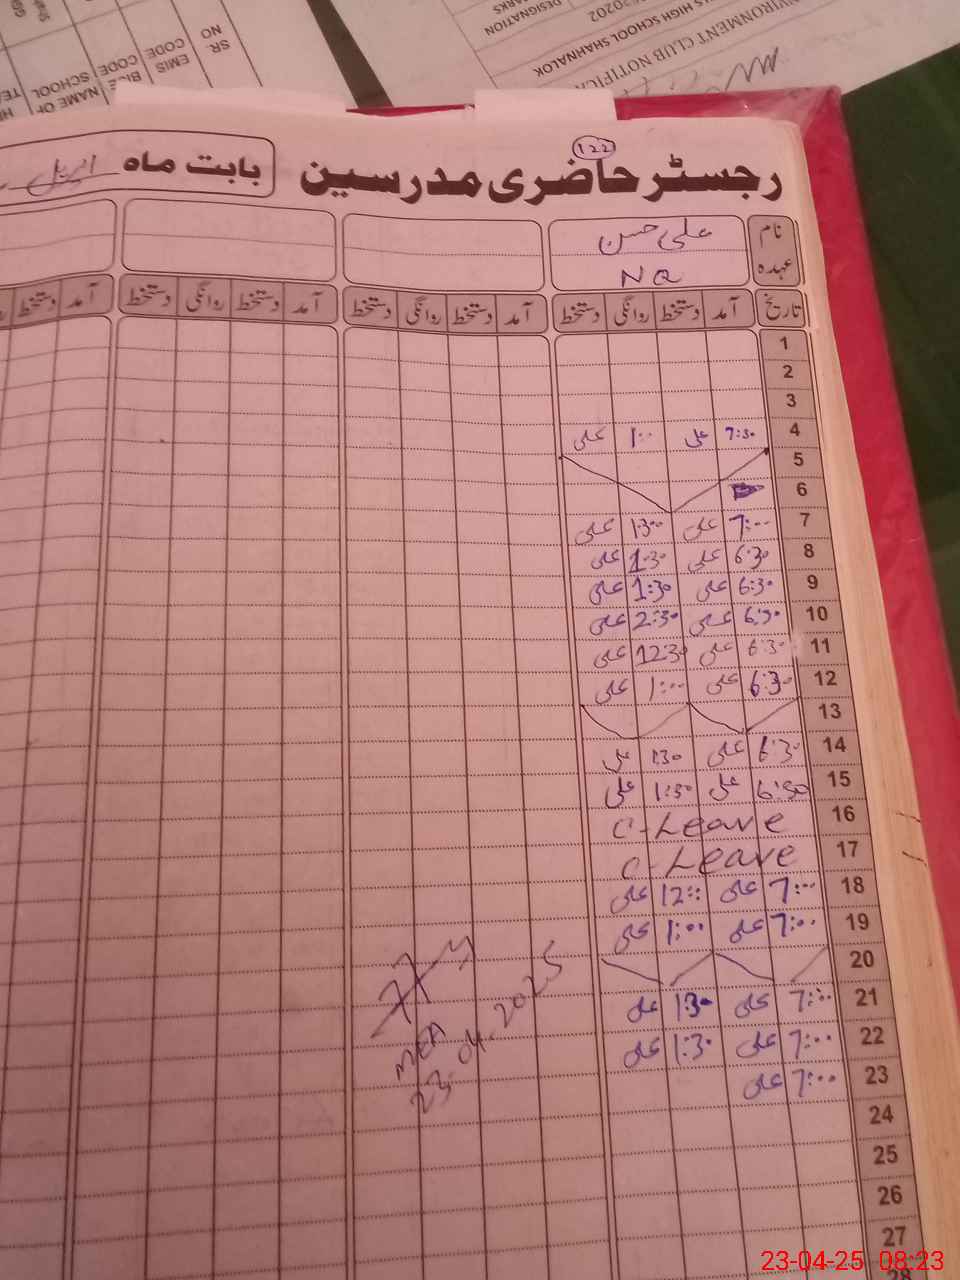 SR. NO
EMIS CODE
BISE CODE
NAME OF SCHOOL
ENVIRONMENT CLUB NOTIFICA
S HIGH SCHOOL SHAHNALOK
DESIGNATION
رجسٹر حاضری مدرسین 122 بابت ماہ اپریل
نام علی حسن
عہدہ NQ
تاریخ آمد دستخط روانگی دستخط آمد دستخط روانگی دستخط آمد دستخط روانگی دستخط آمد دستخط
1
2
3
4 7:30 علی 1:00 علی
5
6
7 7:00 علی 1:30 علی
8 6:30 علی 1:30 علی
9 6:30 علی 1:30 علی
10 6:30 علی 2:30 علی
11 6:30 علی 12:30 علی
12 6:30 علی 1:00 علی
13
14 6:30 علی 1:30 علی
15 6:30 علی 1:30 علی
16 C-Leave
17 C-Leave
18 7:00 علی 12:00 علی
19 7:00 علی 1:00 علی
20
21 7:00 علی 1:30 علی
22 7:00 علی 1:30 علی
23 7:00 علی
24
25
26
27
28
MEA
23.04.2025
23-04-25 08:23